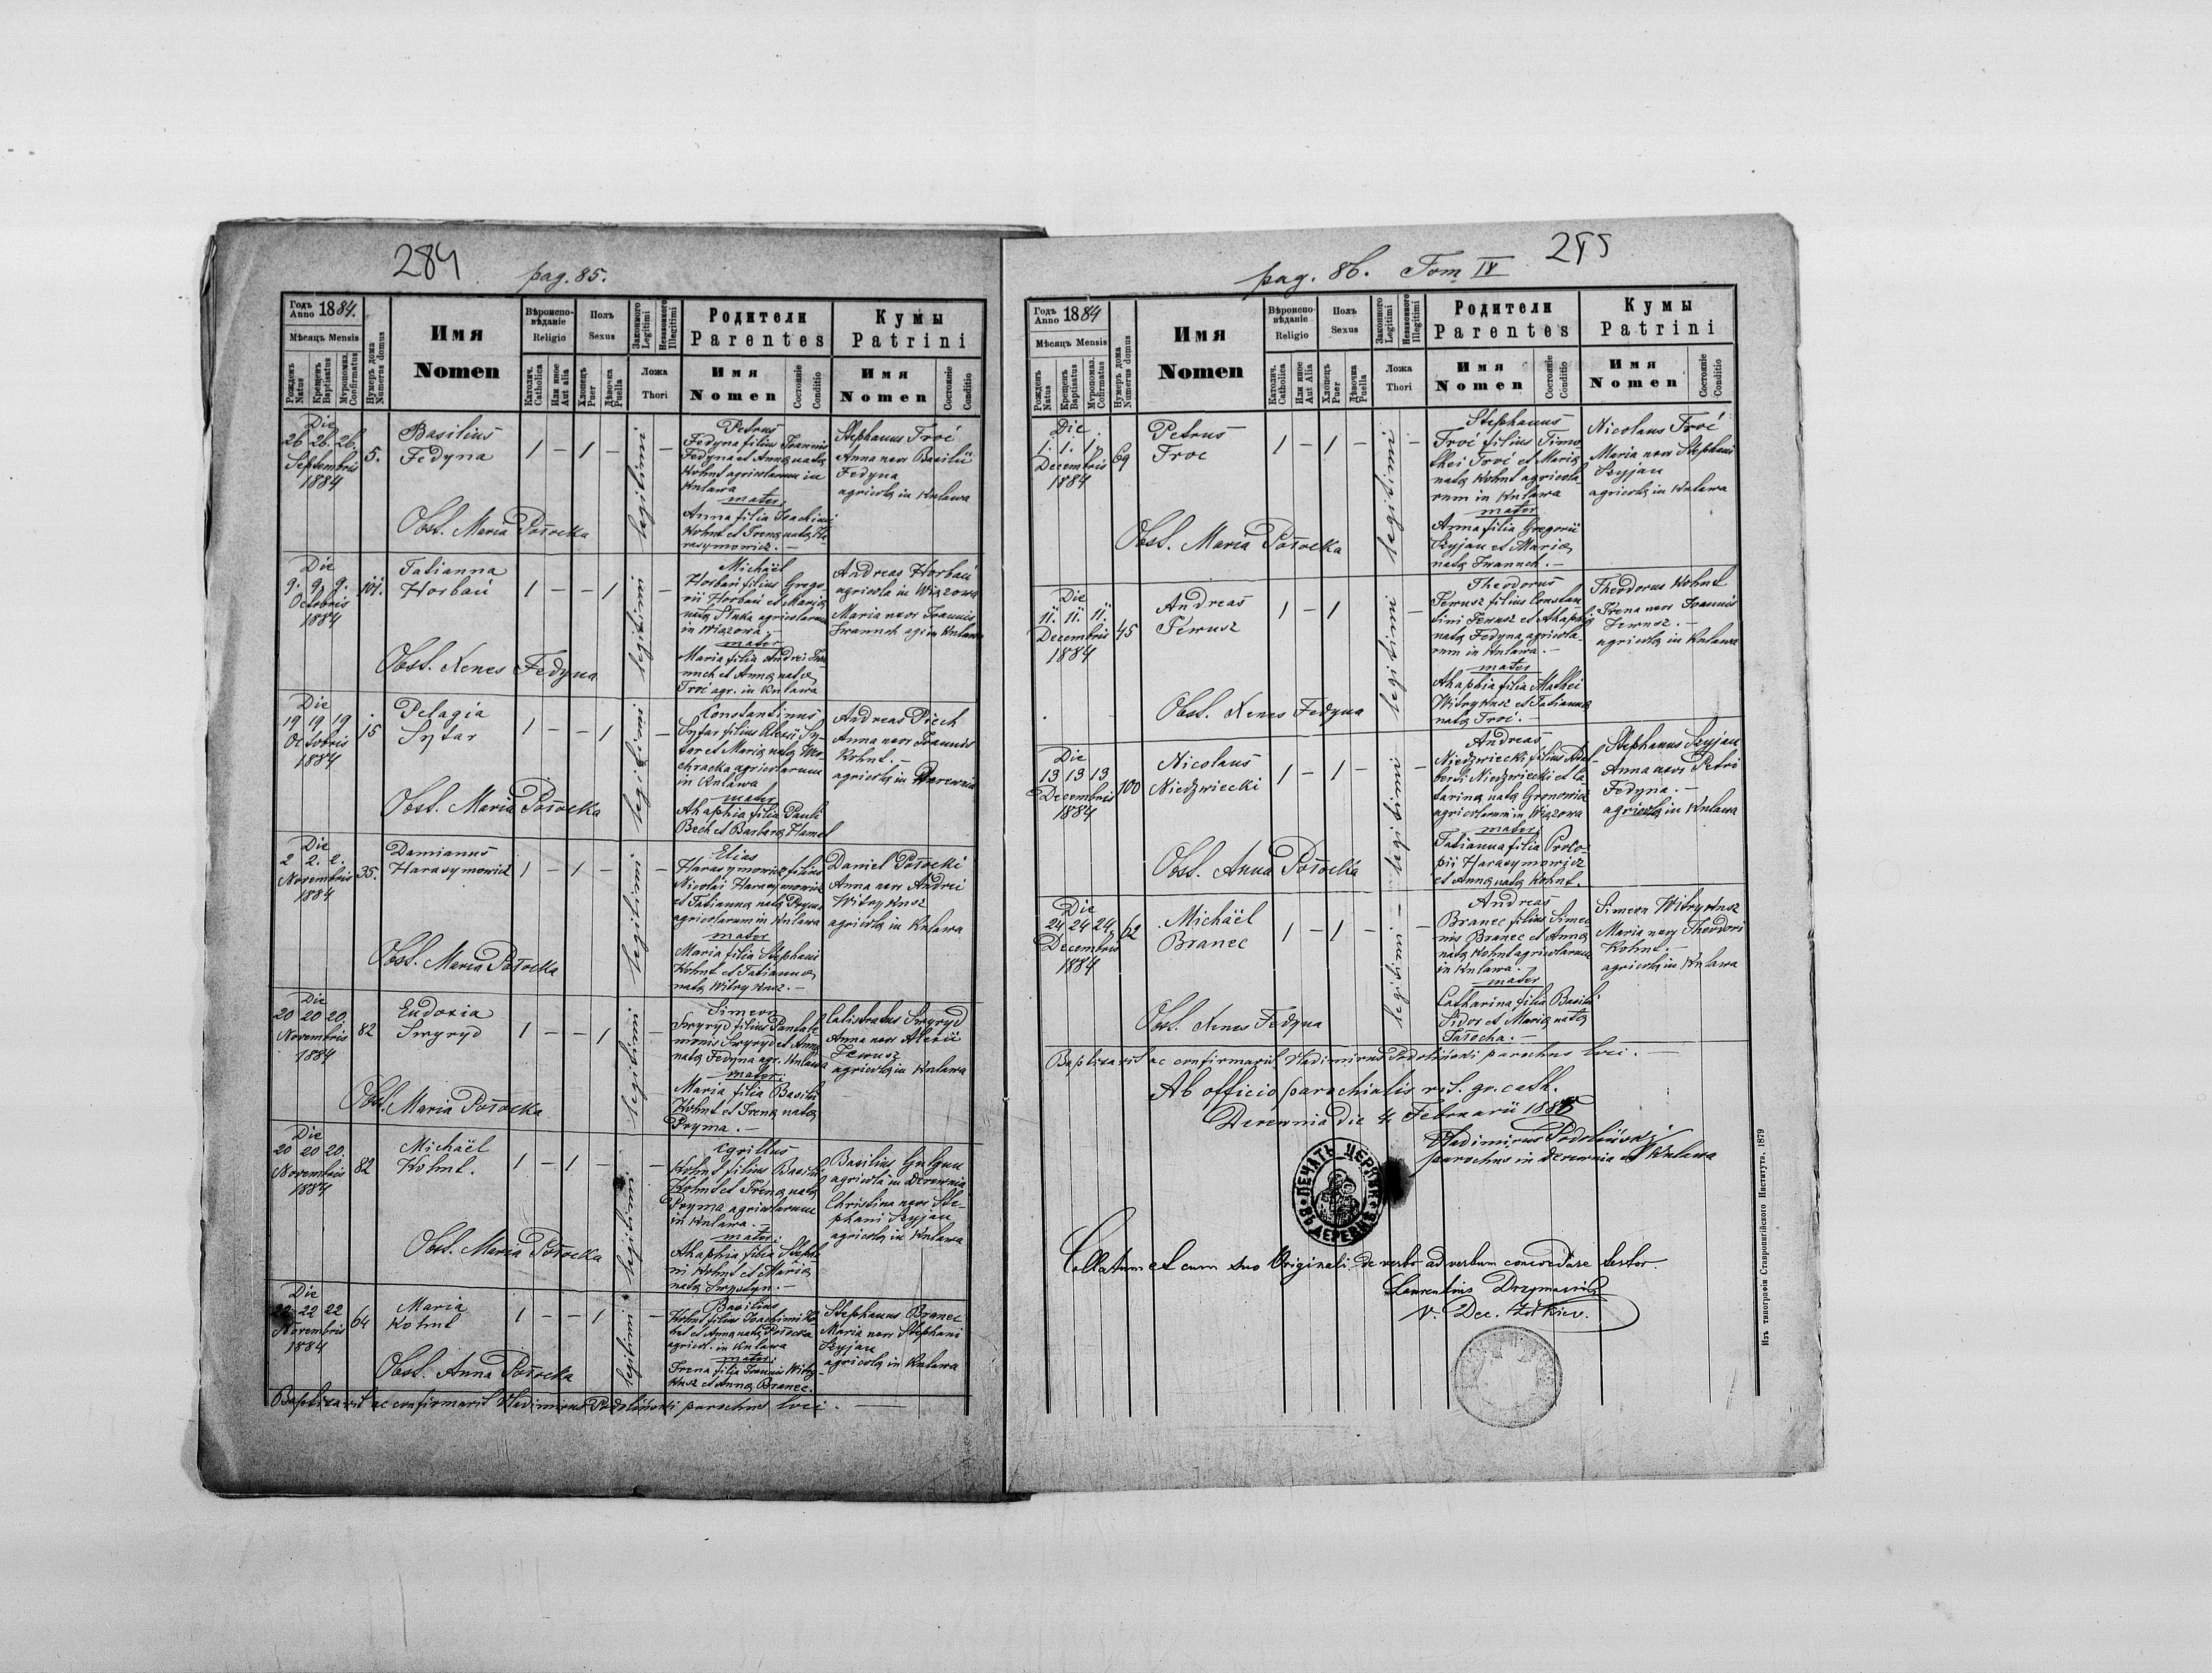 284
pag. 85.
Годъ Anno 1884.
Мѣсяцъ Mensis
Рожденъ Natus
Крещенъ Baptisatus
Мѵропомаз. Confirmatus
Нумеръ дома Numerus domus
Имя
Nomen
Вѣроиспо-
вѣданіе
Religio
Католич. Catholica
Или иное Aut alia
Полъ
Sexus
Хлопецъ Puer
Дѣвочка Puella
Законного Legitimi
Незаконного Illegitimi
Ложа
Thori
Родители
Parentes
Имя
Nomen
Состояніе Conditio
Кумы
Patrini
Имя
Nomen
Состояніе Conditio
Die
26. 26. 26.
Septembris
1884
5.
Basilius
Fedyna
1 – 1 –
legitimi
–
Petrus
Fedyna filius Joannis
Fedyna et Anna nata
Kohut agricolarum in
Kulawa
mater
Anna filia Joachimi
Kohut et Irena nata Ha-
rasymowicz. –
Stephanus Troć
Anna uxor Basilii
Fedyna
agricolae in Kulawa
Obst. Maria Potocka
Die
9. 9. 9.
Octobris
1884
101.
Tatianna
Horbań
1 – – 1
legitimi
–
Michaël
Horbań filius Grego-
rii Horbań et Maria
in Wiązowa. –
mater
Maria filia Andrei Iwa-
nnech et Anna nata
Troć agr. in Kulawa
Andreas Horbań
agricola in Wiązowa
Maria uxor Joannis
Iwannech agr. in Kulawa
Obst. Xenes Fedyna
Die
19 19 19
Octobris
1884
15
Pelagia
Sytar
1 – – 1
legitimi
–
Constantinus
Sytar filius Alexii Sy-
tar et Maria nata
agricolarum
in Kulawa
mater
Ahaphia filia Pauli
Bech et Barbara Hamel
Andreas Piech
Anna uxor Joannis
Kohut. –
agricolae in Derewnia
Obst. Maria Potocka
Die
2 2. 2.
Novembris
1884
35.
Damianus
Harasymowicz
1 – 1 –
legitimi
–
Elias
Harasymowicz filius
Nicolai Harasymowicz
et Tatianna nata Pryma
agricolarum in Kulawa
mater
Maria filia Stephani
Kohut et Tatianna
nata Witrykusz. –
Daniel Potocki
Anna uxor Andrei
Witrykusz
agricolae in Kulawa
Obst. Maria Potocka
Die
20 20 20.
Novembris
1884
82
Eudoxia
Swyryd
1 – – 1
legitimi
–
Simeon
Swyryd filius Pantale-
monis Swyryd et Anna
nata Fedyna agr. Kulawa
mater:
Maria filia Basilii
Kohut et Irena nata
Pryma. –
Calistratus Swyryd
Anna uxor Alexii
Jewusz
agricolae in Kulawa
Obst. Maria Potocka
Die
20 20 20.
Novembris
1884
82
Michaël
Kohut.
1 – 1 –
legitimi
–
Cyrillus
Kohut filius Basilii
Kohut et Irena nata
Pryma agricolarum
in Kulawa. –
mater:
Ahaphia filia Stepha-
ni Kohut et Maria
Basilius
agricola in Derewnia
Christina uxor Ste-
phani Szyjan
agricolae in Kulawa
Obst. Maria Potocka
Die
22 22 22
Novembris
1884
64
Maria
Kohut
1 – – 1
legitimi
–
Basilius
Kohut filius Joachimi Ko-
hut et Anna nata Potocka
agricol. in Kulawa
mater:
Irena filia Joannis Witry-
kusz et Anna Branec.
Stephanus Branec
Maria uxor Stephani
Szyjan
agricolae in Kulawa
Obst. Anna Potocka
Baptizavit ac confirmavit Vladimirus Podoliński parochus loci. –
pag. 86. Tom IV
Годъ Anno 1884
Мѣсяцъ Mensis
Рожденъ Natus
Крещенъ Baptisatus
Мѵропомаз. Cofirmatus
Нумеръ дома Numerus domus
Имя
Nomen
Вѣроиспо-
вѣданіе
Religio
Католич. Catholica
Или иное Aut Alia
Полъ
Sexus
Хлопецъ Puer
Дѣвочка Puella
Законного Legitimi
Незаконного Illegitimi
Ложа
Thori
Родители
Parentes
Имя
Nomen
Состояніе Conditio
Кумы
Patrini
Имя
Nomen
Состояніе Conditio
Die
1. 1. 1.
Decembris
1884
69
Petrus
Troć
1 – 1 –
legitimi
–
Stephanus
Troć filius Timo-
thei Troć et Maria
nata Kohut agricola-
rum in Kulawa
mater
Anna filia Gregorii
Szyjan et Maria
nata Iwannech. –
Nicolaus Troć
Maria uxor Stephani
Szyjan
agricolae in Kulawa
Obst. Maria Potocka
Die
11. 11. 11.
Decembris
1884
45
Andreas
Jewusz
1 – 1
legitimi
–
Theodorus
Jewusz filius Constan-
tini Jewusz et Ahaphia
nata Fedyna agricola-
rum in Kulawa. –
mater
Ahaphia filia Mathei
Witrykusz et Tatianna
nata Troć. –
Theodorus Kohut
Irena uxor Joannis
Jewusz. –
agricolae in Kulawa
Obst. Xenes Fedyna
Die
13 13 13
Decembris
1884
100
Nicolaus
Niedzwiecki
1 – 1 –
legitimi
–
Andreas
Niedzwiecki filius Adal-
berti Niedzwiecki et Ca-
tarina nata Gronowicz
agricolarum in Wiązowa
mater
Tatianna filia Proko-
pii Harasymowicz
et Anna nata Kohut.
Stephanus Szyjan
Anna uxor Petri
Fedyna. –
agricolae in Kulawa
Obst. Anna Potocka
Die
24 24 24
Decembris
1884
62
Michaël
Branec
1 – 1 –
legitimi
–
Andreas
Branec filius Simeo-
nis Branec et Anna
nata Kohut agricolarum
in Kulawa. –
mater
Catharina filia Basilii
Sidor et Maria nata
Simeon Witrykusz
Maria uxor Theodori
Kohut. –
agricolae in Kulawa
Obst. Xenes Fedyna
Baptizavit ac confirmavit Vladimirus Podoliński parochus loci. –
Ab officio parochialis rit. gr. cath.
Derewnia die 4 Februarii
Vladimirus Podoliński
parochus in Derewnia et Kulawa
ПЕЧАТЬ ЦЕРКВИ ВЪ ДЕРЕВНѢ
Collatum et cum suo Originali de verbo ad verbum concordare testor.
Laurentius
V. Dec.
Изъ типографіи Ставропигійского Института. 1879